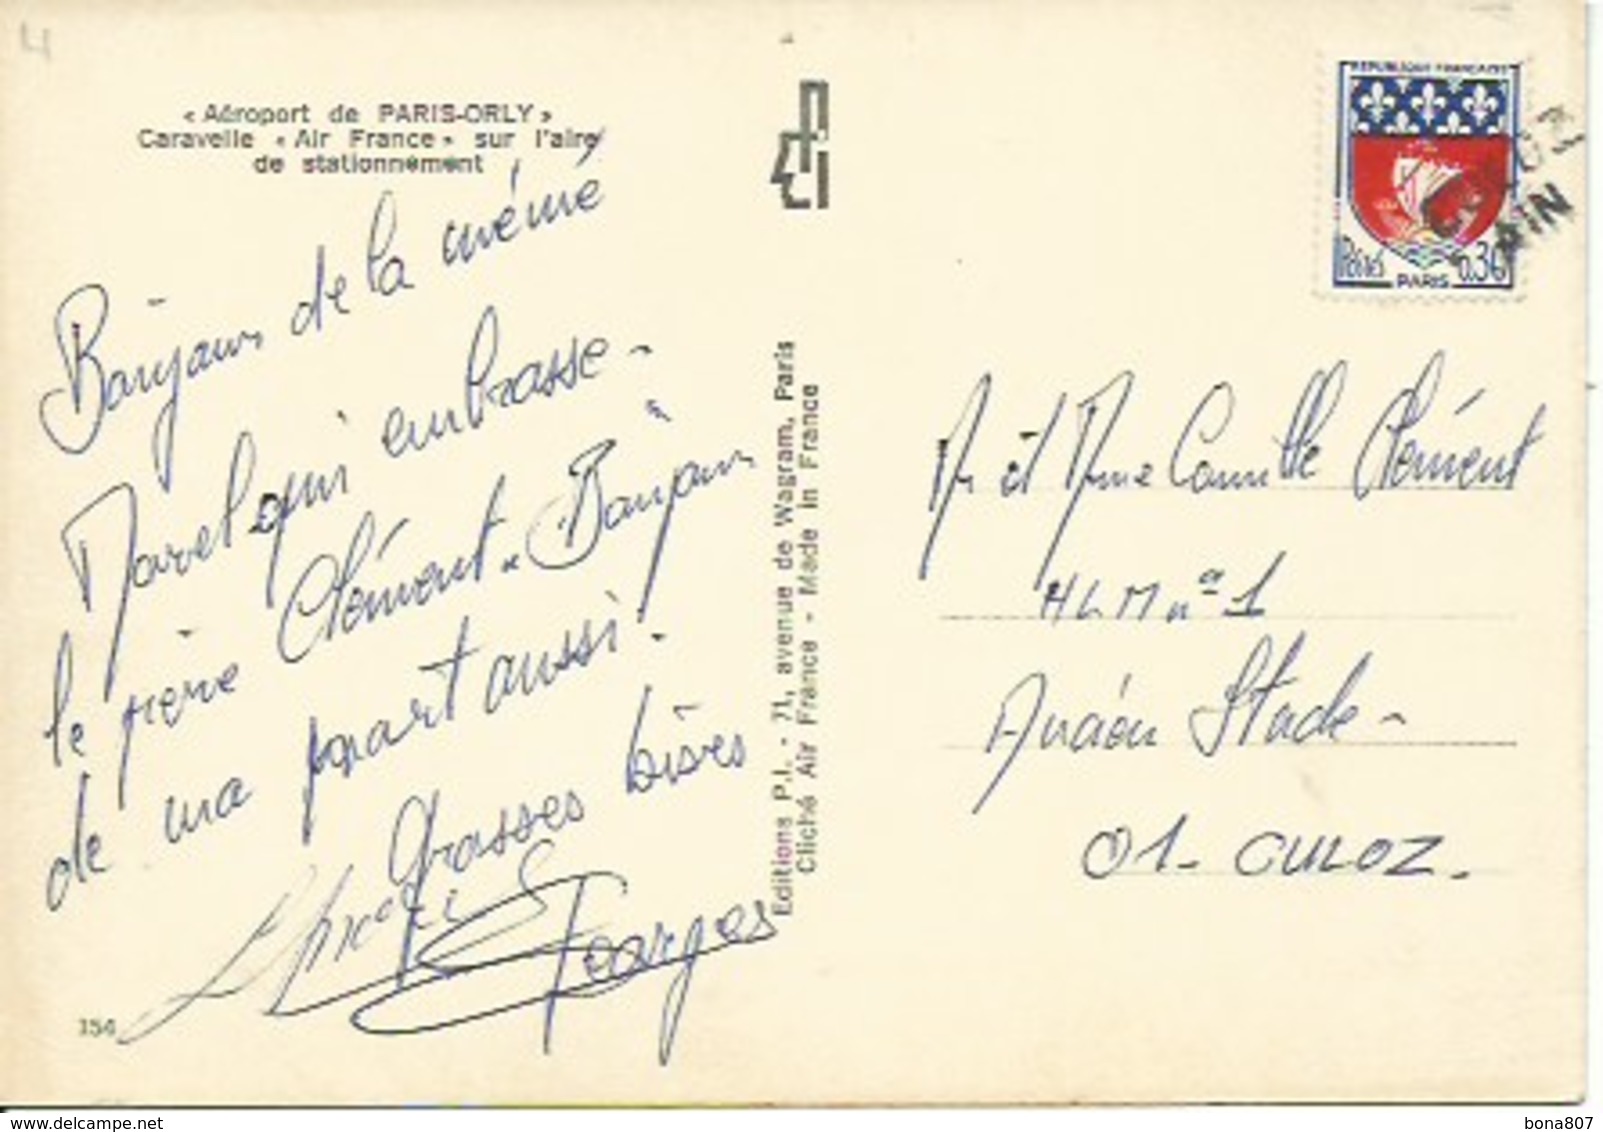 « Aéroport de PARIS-ORLY »
Caravelle « Air France » sur l'aire
de stationnement
Bonjour de la mémé
Marel qui embrasse -
le pépé Clément - Bonjour
de ma part aussi.
Grosses bises
Georges
154
Editions P.I. - 71, avenue de Wagram, Paris
Cliché Air France - Made in France
REPUBLIQUE FRANÇAISE
Postes 0,30
PARIS
CULOZ
AIN
Mr et Mme Camille Clément
HLM n° 1
Ancien Stade -
01 - CULOZ.
bona807